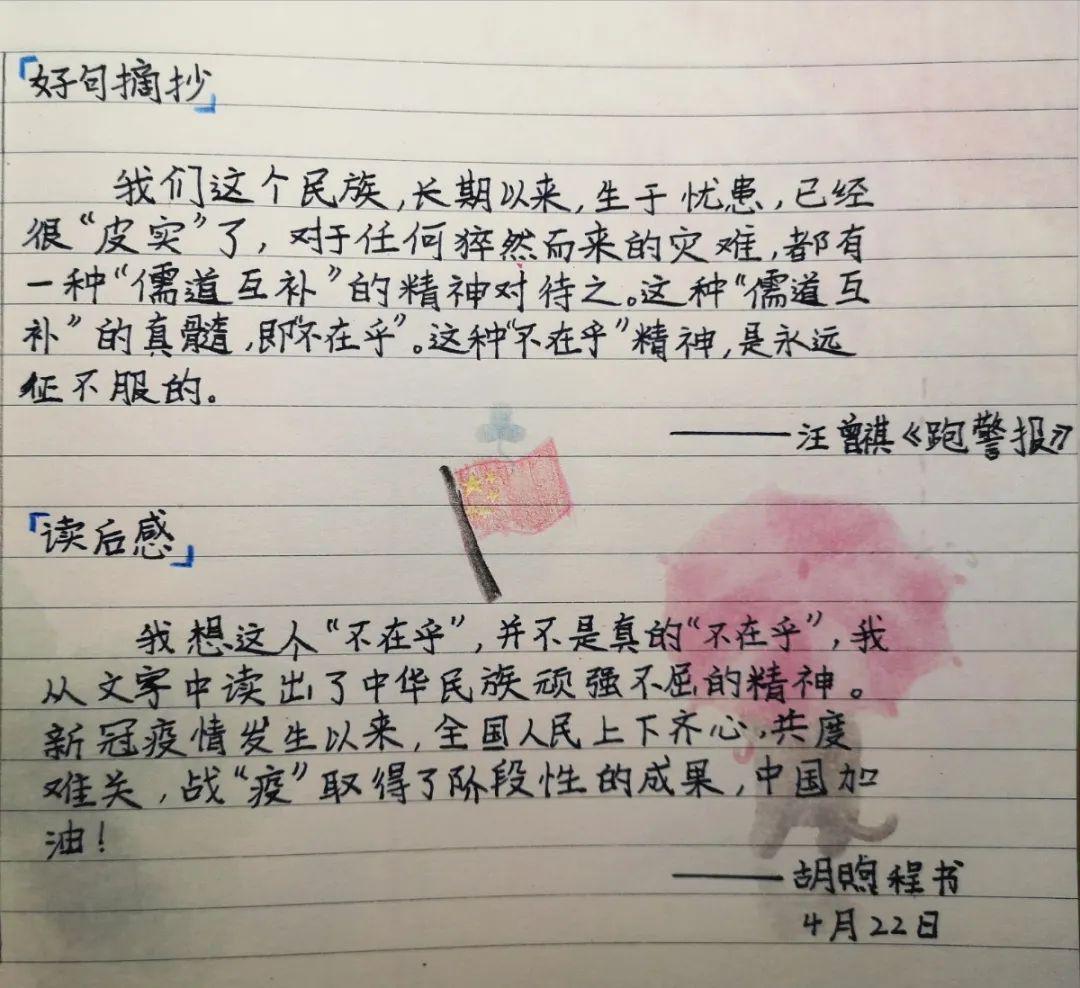 「好句摘抄」
我们这个民族,长期以来,生于忧患,已经
很“皮实”了,对于任何猝然而来的灾难,都有
一种“儒道互补”的精神对待之。这种“儒道互
补”的真髓,即“不在乎”。这种“不在乎”精神,是永远
征不服的。
——汪曾祺《跑警报》
「读后感」
我想这个“不在乎”,并不是真的“不在乎”,我
从文字中读出了中华民族顽强不屈的精神。
新冠疫情发生以来,全国人民上下齐心,共度
难关,战“疫”取得了阶段性的成果,中国加
油!
——胡煦程书
4月22日